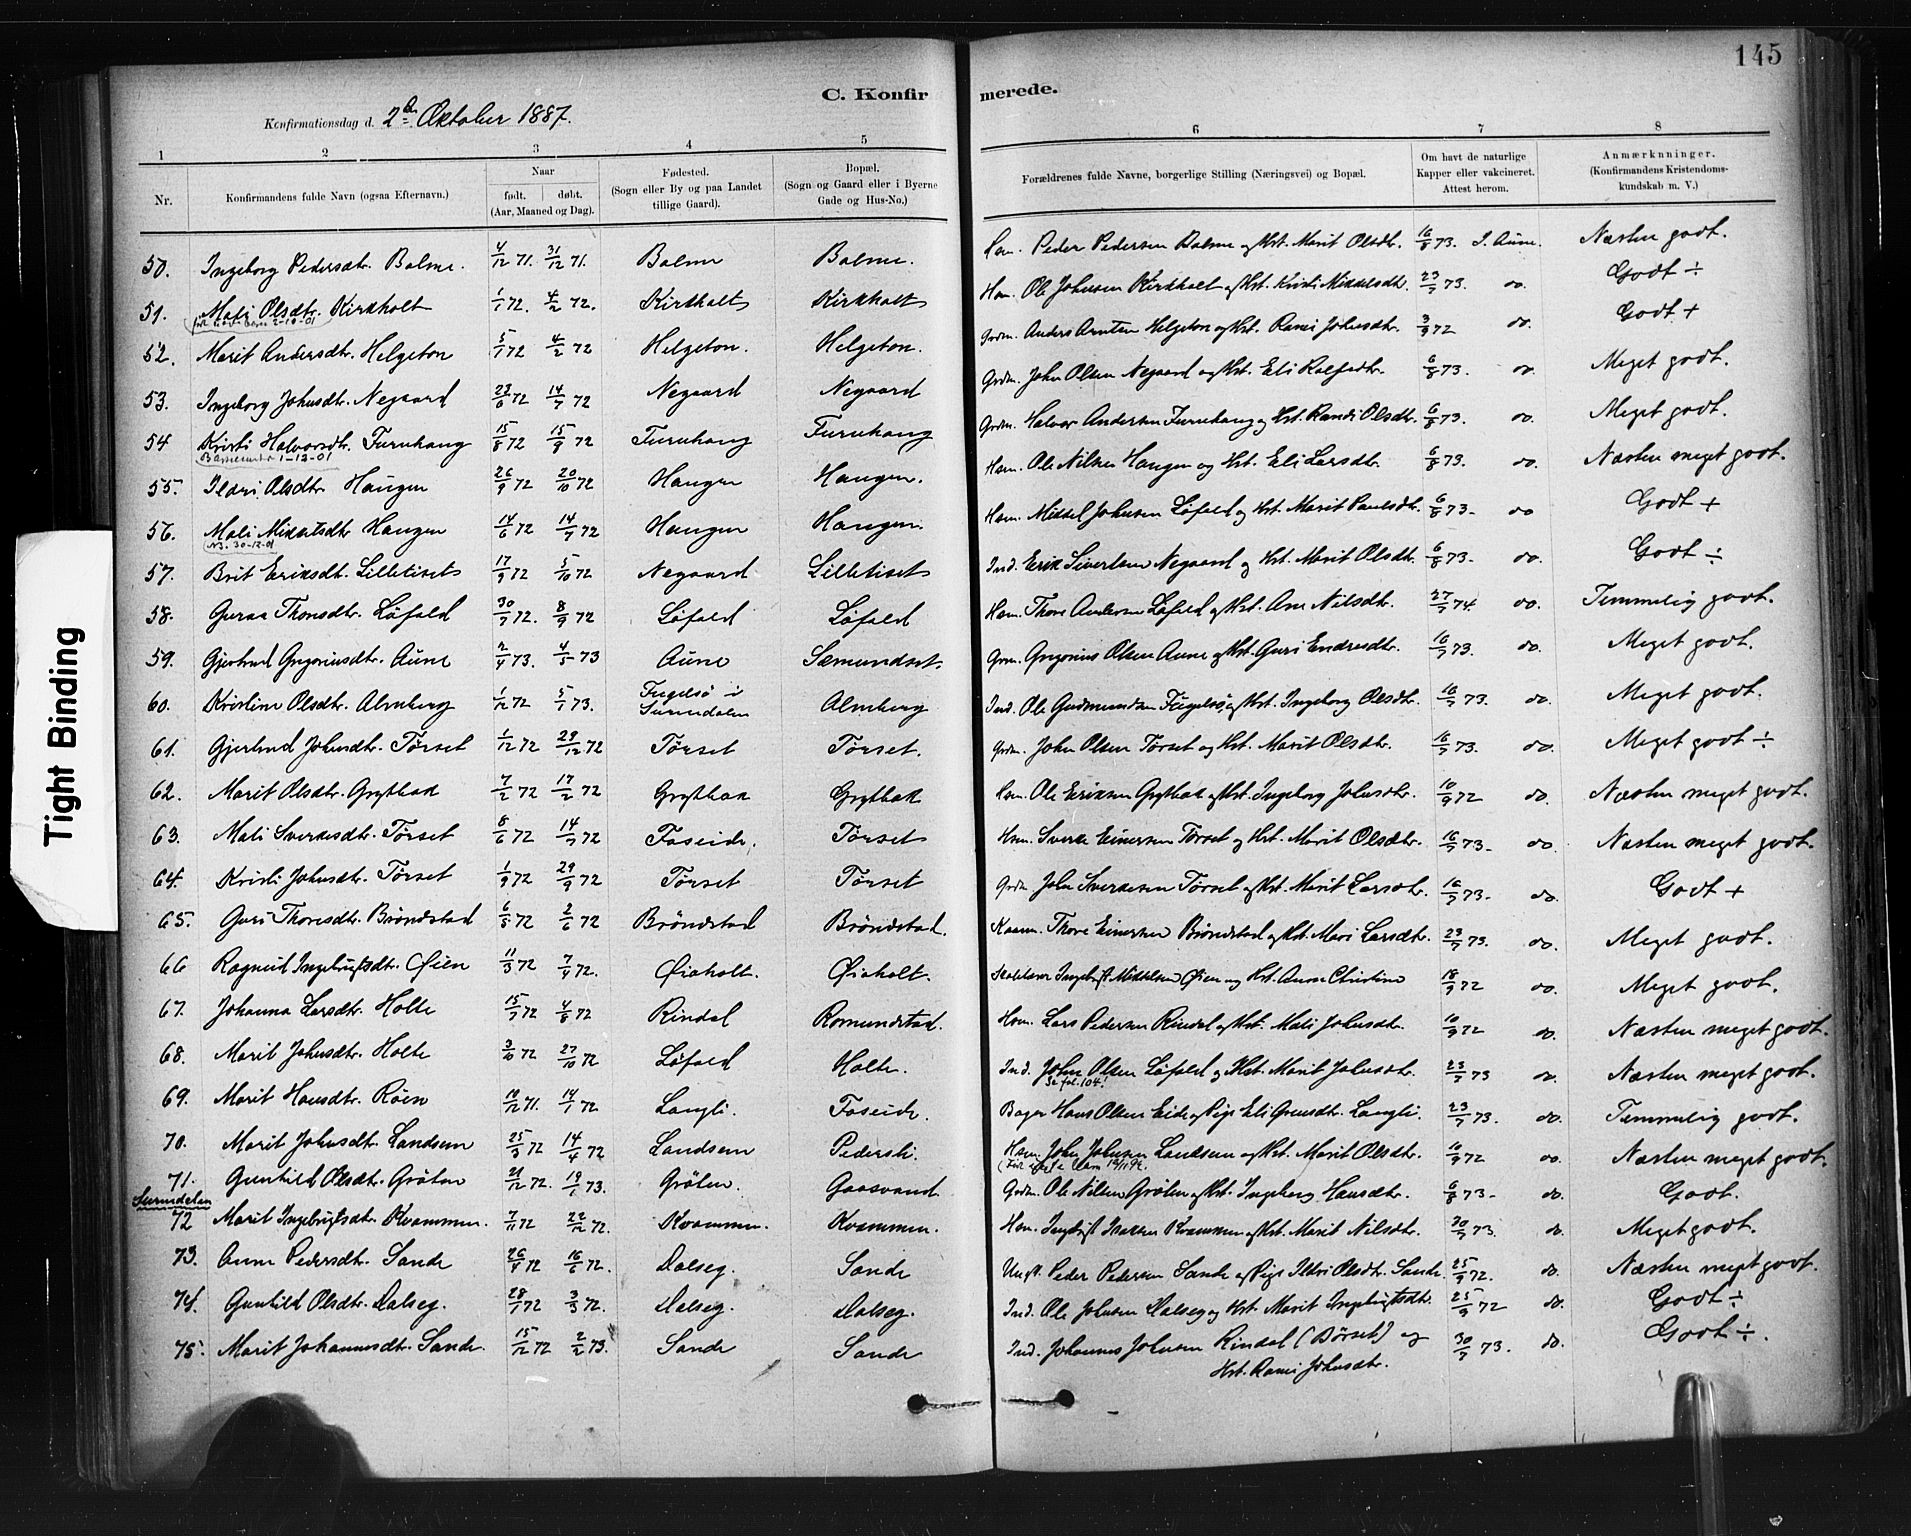 145
C. Konfir merede.
Konfirmationsdag d. 2den Oktober 1887.
1 2 3 4 5 6 7 8
Nr. Konfirmandens fulde Navn (ogsaa Efternavn.) Naar født. døbt. (Aar, Maaned og Dag). Fødested. (Sogn eller By og paa Landet tillige Gaard). Bopæl. (Sogn og Gaard eller i Byerne Gade og Hus-No.) Forældrenes fulde Navne, borgerlige Stilling (Næringsvei) og Bopæl. Om havt de naturlige Kapper eller vakcineret. Attest herom. Anmærkninger. (Konfirmandens Kristendomskundskab m. V.)
50. Ingeborg Pedersdtr. Bolme. 4/12 71. 31/12 71. Bolme Bolme. Hsm. Peder Pedersen Bolme og Hst. Marit Olsdtr. 16/8 73. I. Aune. Næsten godt.
51. Mali Olsdtr. Kirkholt 1/1 72. 4/2 72. Kirkholt Kirkholt Hsm. Ole Johnsen Kirkholt og Hst. Kristi Mikkelsdtr. 23/7 73. do. Godt ÷
2-12-01
52. Marit Andersdtr. Helgeton 5/1 72 4/2 72 Helgeton. Helgeton. Grdm. Anders Arntsen Helgeton og Hst. Randi Johnsdtr. 3/9 72 do. Godt +
53. Ingeborg Johnsdtr. Negaard 22/6 72 14/7 72 Negaard Negaard Grdm. John Olsen Negaard og Hst. Eli Rolfsdtr. 6/8 73. do. Meget godt.
54 Kristi Halvorsdtr. Furuhaug 15/8 72 15/9 72 Furuhaug Furuhaug Grdm. Halvor Andersen Furuhaug og Hst. Randi Olsdtr. 6/8 73. do. Meget godt.
1-12-01
55. Ildri Olsdtr. Haugen 26/9 72 20/10 72 Haugen Haugen. Hsm. Ole Nilsen Haugen og Hst. Eli Larsdtr. 6/8 73. do. Næsten meget godt.
56. Mali Mikkelsdtr Haugen 14/6 72 14/7 72 Haugen Haugen. Hsm. Mikkel Johnsen Løfald og Hst. Marit Paulsdtr. 6/8 73- do Godt +
30-12-01
57. Brit Eriksdtr. Lilletiset 17/9 72 5/10 72 Negaard Lilletiset Ind. Erik Sivertsen Negaard og Hst. Marit Olsdtr. 6/8 73- do. Godt ÷
58. Guraa Thoresdtr. Løfald 30/7 72. 8/9 72 Løfald Løfald Hsm. Thore Andersen Løfald og Hst. Ane Nilsdtr. 27/7 74 do. Temmelig godt.
59. Gjertrud Gregoriusdtr. Aune 2/4 73. 4/5 73 Aune Sæmundset. Grm. Gregorius Olsen Aune og Hst. Guri Endresdtr. 16/7 73. do. Meget godt.
60. Kristine Olsdtr. Almberg 1/12 72 5/1 73. Fugelsø i Surendalen Almberg Ind. Ole Gudmundsen Fugelsø og Hst. Ingeborg Olsdtr. 16/7 73. do. Meget godt.
61. Gjertrud Johnsdtr. Tørset 1/12 72 29/12 72 Tørset Tørset. Grdm. John Olsen Tørset og Hst. Marit Olsdtr. 16/7 73. do. Meget godt ÷
62. Marit Olsdtr. Grytbak 7/2 72 17/2 72 Grytbak Grytbak Hsm. Ole Eriksen Grytbak og Hst. Ingeborg Johnsdtr. 10/9 72 do. Næsten meget godt.
63. Mali Sverkesdtr. Tørset 8/6 72 14/7 72 Foseide. Tørset Hsm. Sverke Einersen Tørset og Hst. Marit Olsdtr. 16/7 73- do. Næsten meget godt.
64. Kristi Johnsdtr. Tørset 1/9 72 29/9 72 Tørset Tørset Grdm. John Sverkesen Tørset og Hst. Marit Larsdtr. 16/7 73- do. Godt +
65. Guri Thoresdtr. Brøndstad 6/5 72 2/6 72 Brøndstad Brøndstad. Kaarm. Thore Einersen Brøndstad og Hst. Mari Larsdtr. 23/7 73. do. Meget godt.
66 Ragnild Ingebrigtsdtr. Øien 11/3 72 7/4 72. Øiaholt. Øiaholt. Skolelærer Ingebrigt Mikkelsen Øien og Hst. Anne Christine 18/9 72 do. Meget godt.
67. Johanna Larsdtr. Holte 15/7 72 4/8 72 Rindal Romundstad. Hsm. Lars Pedersen Rindal og Hst. Mali Johnsdtr. 10/9 72 do. Næsten meget godt.
68. Marit Johnsdtr. Holte 3/10 72 27/10 72 Løfald Holte. Ind. John Olsen Løfald og Hst. Marit Johnsdtr. 23/7 73 do. Næsten meget godt.
Se fol. 104!
69. Marit Hansdtr. Røen 10/12 71. 14/1 72 Langli. Foseide. Bager Hans Olsen Eide og Pige Eli Grunsdtr. Langli. 23/7 73. do. Temmelig godt.
70. Marit Johnsdtr. Landsem 25/3 72 14/4 72 Landsem Pedersli. Hsm. John Johnsen Landsem og Hst. Marit Olsdtr. 10/9 72 do. Næsten meget godt.
71. Gunhild Olsdtr. Grølen 21/12 72. 19/1 73. Grølen. Gaasvand. Grdm. Ole Nilsen Grølen og Hst. Ingeborg Hansdtr. 6/8 73- do. Godt.
Surendalen
72 Marit Ingebrigtsdtr. Kvammen. 7/11 72 22/12 72. Kvammen. Kvammen. Hsm. Ingebrigt Isaksen Kvammen og Hst. Marit Nilsdtr. 30/7 73. do. Meget godt.
73. Anne Pedersdtr. Sande 26/4 72 16/6 72. Dalseg. Sande Ungk. Peder Pedersen Sande og Pige Ildri Olsdtr. Sande. 25/9 72. do. Næsten meget godt.
74. Gunhild Olsdtr. Dalseg. 28/1 72 3/3 72. Dalseg. Dalseg. Ind. Ole Johnsen Dalseg og Hst. Marit Ingebrigtsdtr. 25/9 72 do. Godt ÷
75. Marit Johannesdtr. Sande. 15/12 72 2/2 73. Sande Sande Ind. Johannes Johnsen Rindal (Børset) og 30/7 73. do. Godt ÷.
Hst. Randi Johnsdtr.
Tight Binding